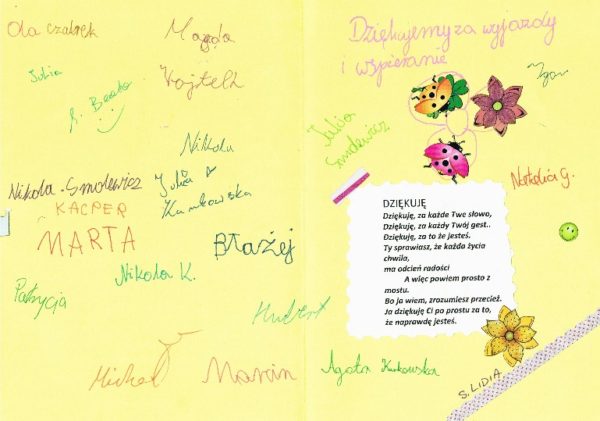 Ola Czabrek
Magda
Julia
Wojtek
R. Beata
Nikola
Nikola. Smolewicz
Julia
Kunikowska
KACPER
MARTA
Błażej
Nikola K.
Patrycja
Hubert
Michał
Marcin
Dziękujemy za wyjazdy
i wspieranie
Igor
Julia
Smolewicz
Natalia G.
DZIĘKUJĘ
Dziękuję, za każde Twe słowo,
Dziękuję, za każdy Twój gest..
Dziękuję, za to że jesteś.
Ty sprawiasz, że każda życia
chwila,
ma odcień radości
A więc powiem prosto z
mostu.
Bo ja wiem, zrozumiesz przecież.
Ja dziękuję Ci po prostu za to,
że naprawdę jesteś.
Agata
S. LIDIA